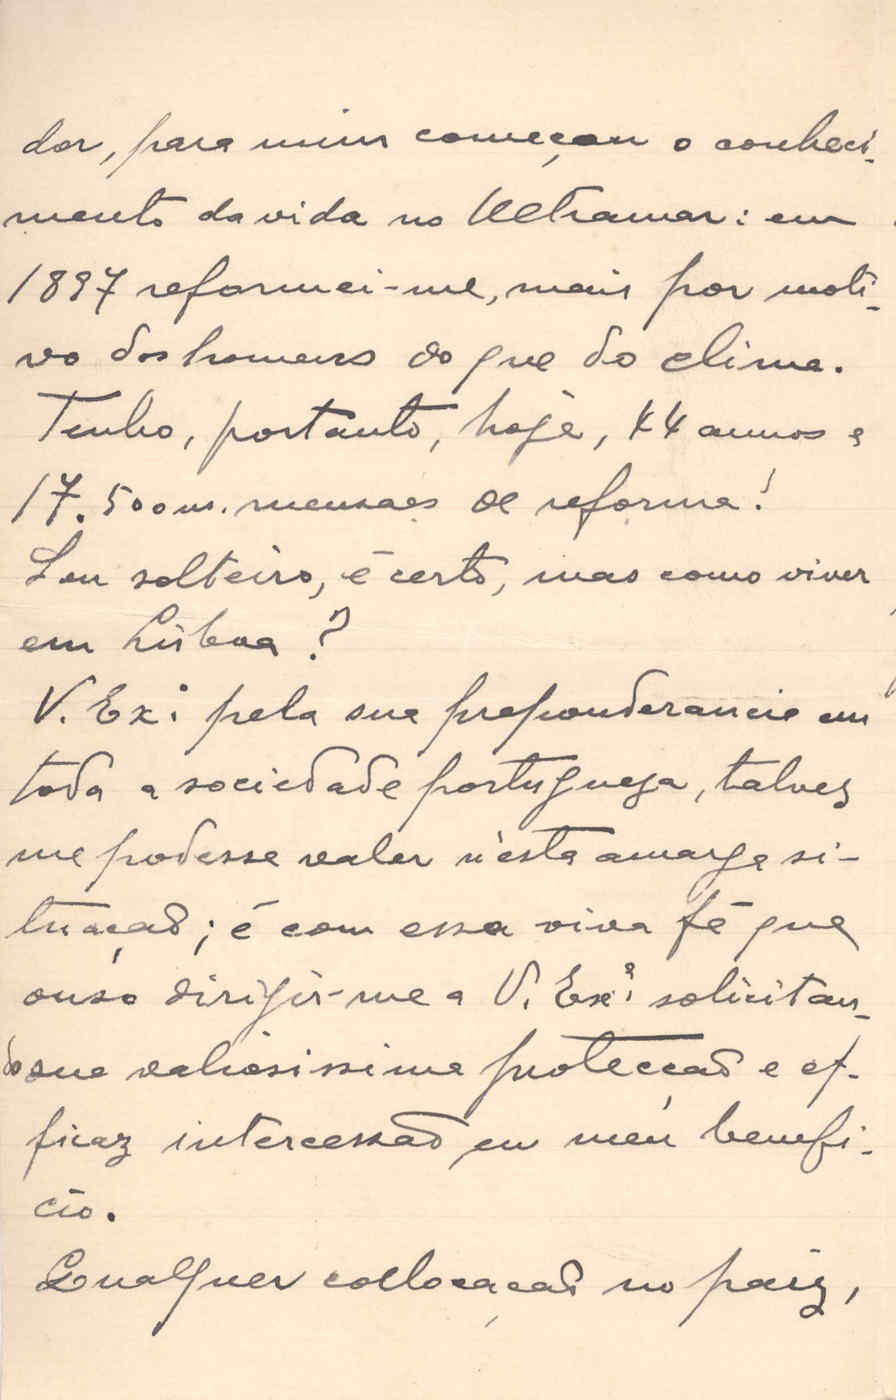 dor, para mim começou o conheci-
mento da vida no Ultramar: em
1897 reformei-me, mais por moti-
vo dos homens do que do clima.
Tenho, portanto, hoje, 44 annos e
17.500 rs. mensaes de reforma!
Sou solteiro, é certo, mas como viver
em Lisboa?
V. Exª pela sua preponderancia em
toda a sociedade portugueza, talvez
me podesse valer n'esta amarga si-
tuação; é com essa viva fé que
ouso dirigir-me a V. Exª solicitan-
do sua valiosissima protecção e ef-
ficaz intercessão em meu benefi-
cio.
Qualquer collocação no paiz,